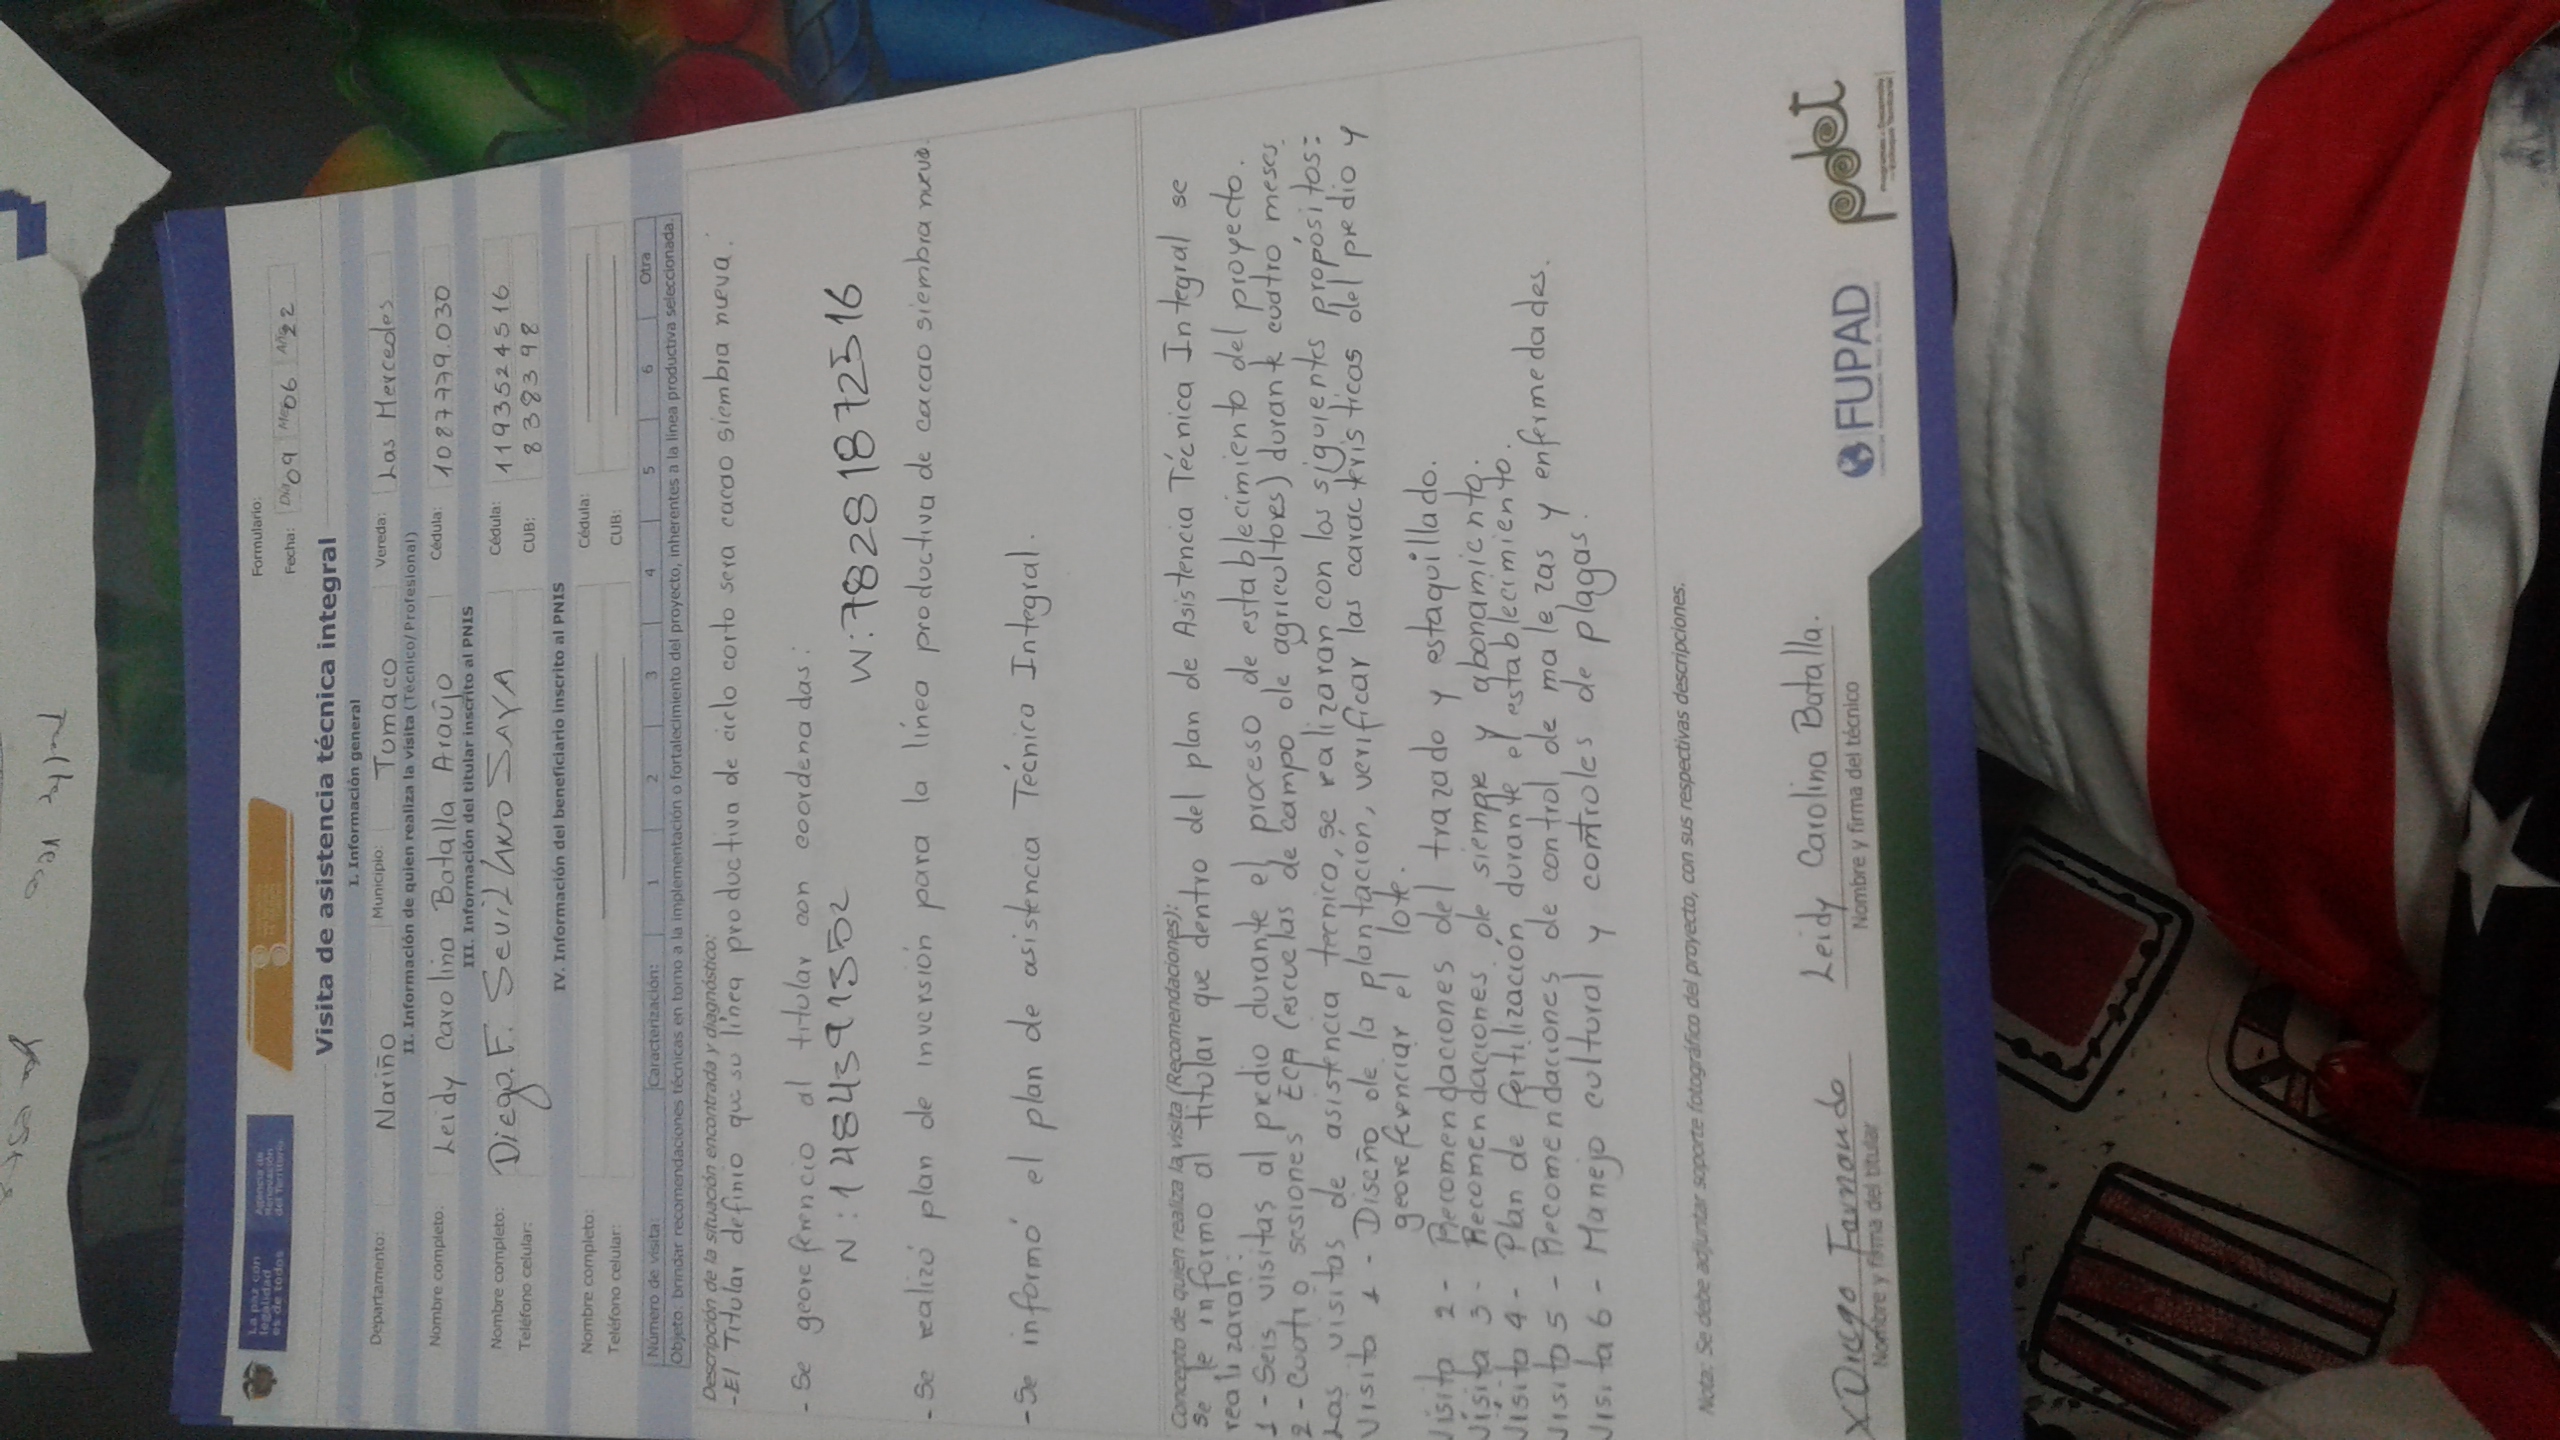 La paz con
legalidad
es de todos
Agencia de
Renovación
del Territorio
Formulario:
Fecha: Día 09 Mes 06 Año 22
Visita de asistencia técnica integral
I. Información general
Departamento: Nariño Municipio: Tumaco Vereda: Las Mercedes
II. Información de quien realiza la visita (Técnico/Profesional)
Nombre completo: Leidy Carolina Batalla Araújo Cédula: 1087779.030
III. Información del titular inscrito al PNIS
Nombre completo: Diego F. Sevillano SAYA Cédula: 1193524516
Teléfono celular: CUB: 838398
IV. Información del beneficiario inscrito al PNIS
Nombre completo: Cédula:
Teléfono celular: CUB:
Número de visita: Caracterización: 1 2 3 4 5 6 Otra
Objeto: brindar recomendaciones técnicas en torno a la implementación o fortalecimiento del proyecto, inherentes a la línea productiva seleccionada.
Descripción de la situación encontrada y diagnóstico:
-El Titular definio que su línea productiva de ciclo corto sera cacao siembra nueva.
- Se georeferencio al titular con coordenadas:
N: 14843913502 W: 78281872516
- Se realizó plan de inversión para la línea productiva de cacao siembra nueva.
- Se informó el plan de asistencia Técnica Integral.
Concepto de quien realiza la visita (Recomendaciones):
Se le informo al titular que dentro del plan de Asistencia Técnica Integral se
realizaran:
1 - Seis visitas al predio durante el proceso de establecimiento del proyecto.
2 - Cuatro sesiones ECA (escuelas de campo de agricultores) durante cuatro meses.
Las visitas de asistencia tecnica, se realizaran con los siguientes propósitos:
Visita 1 - Diseño de la plantación, verificar las caracteristicas del predio y
georeferenciar el lote.
Visita 2 - Recomendaciones del trazado y estaquillado.
Visita 3 - Recomendaciones de siempre y abonamiento.
Visita 4 - Plan de fertilización durante el establecimiento.
Visita 5 - Recomendaciones de control de malezas y enfermedades.
Visita 6 - Manejo cultural y controles de plagas.
Nota: Se debe adjuntar soporte fotográfico del proyecto, con sus respectivas descripciones.
x Diego Fernando Leidy Carolina Batalla.
Nombre y firma del titular Nombre y firma del técnico
FUPAD
pdet